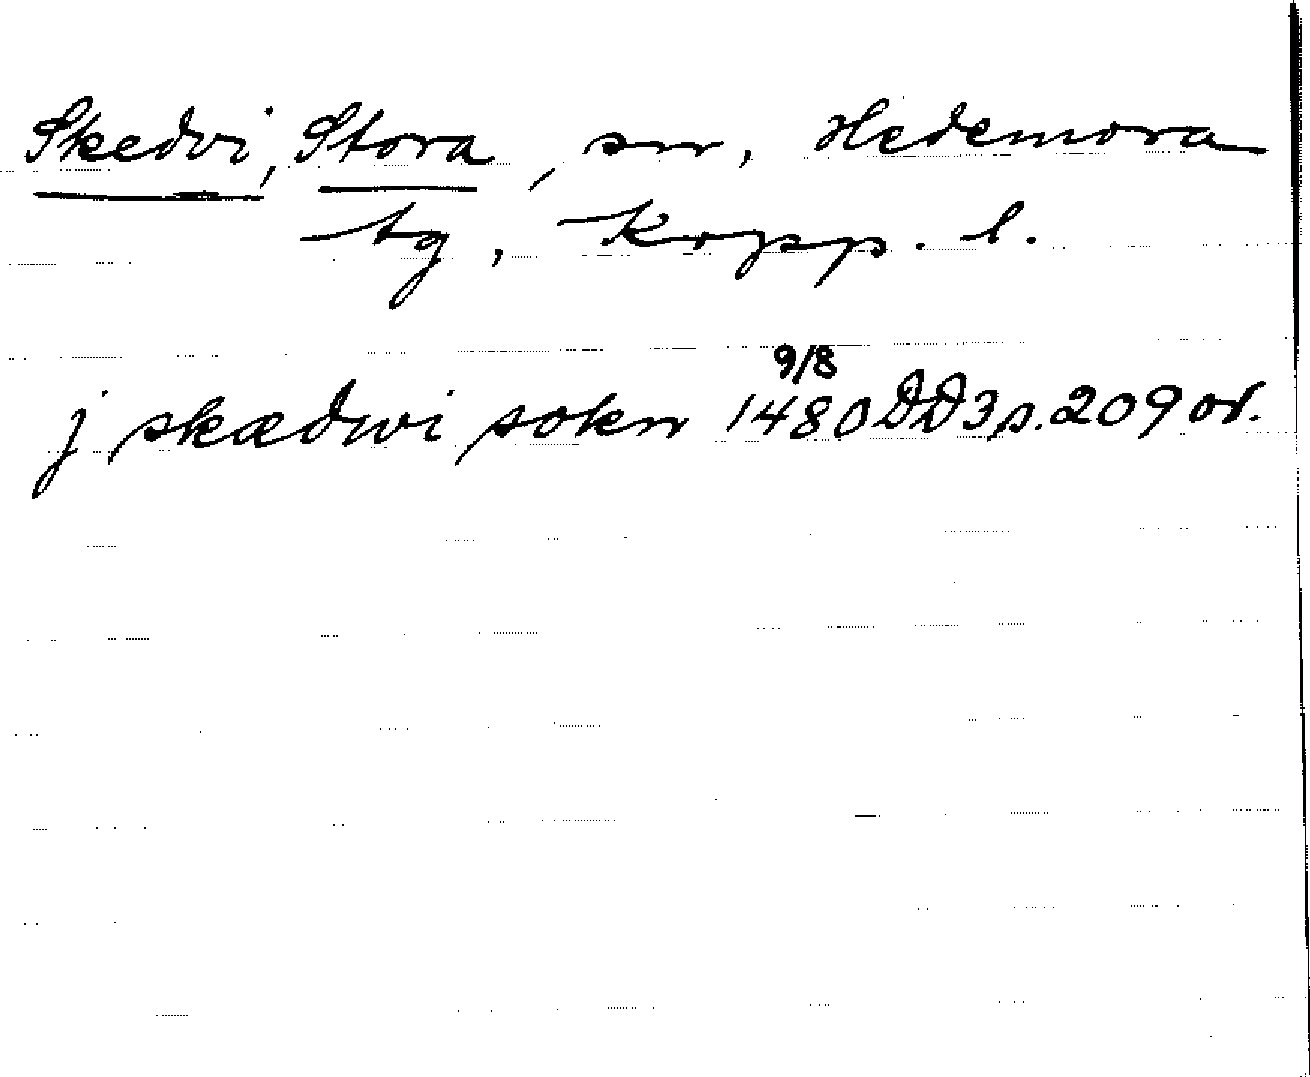 Skedvi, Stora, sn, Hedemora
tg, Kopp. l.
9/8
j skædwi sokn 1480 DD3 p. 209 or.